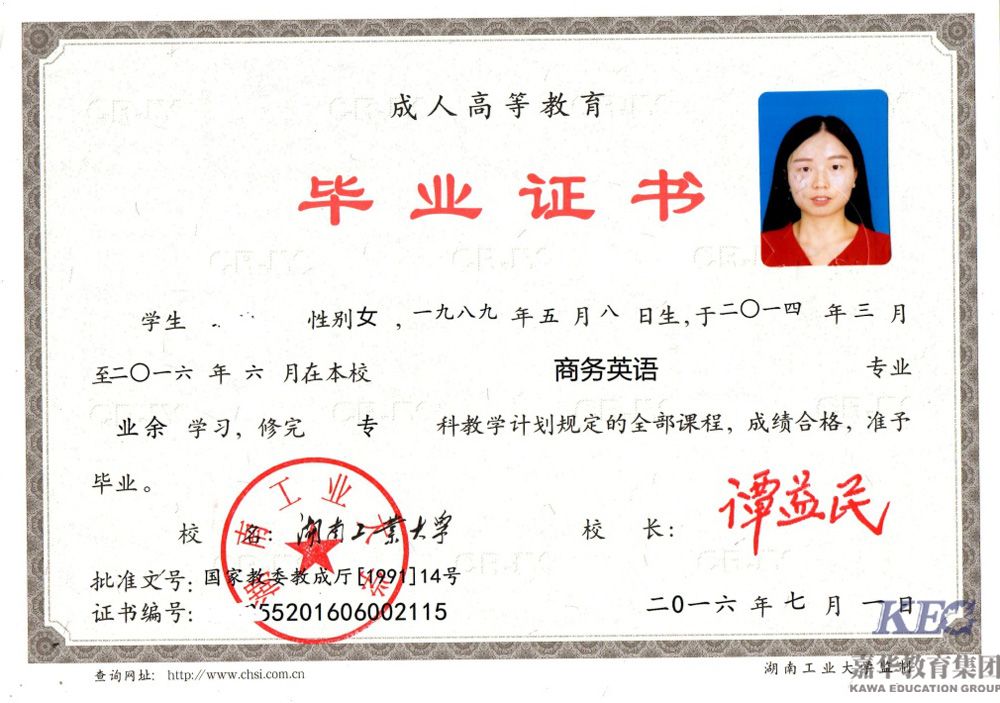 成人高等教育
毕业证书
学生 性别女,一九八九年五月八日生,于二〇一四年三月
至二〇一六年六月在本校 商务英语 专业
业余 学习,修完 专 科教学计划规定的全部课程,成绩合格,准予
毕业。
校 名: 湖南工业大学 校 长: 谭益民
湖南工业大学
批准文号: 国家教委教成厅[1991]14号
证书编号: 55201606002115 二0一六年七月一日
KEG
查询网址: http://www.chsi.com.cn 湖南工业大学监制
嘉华教育集团
KAWA EDUCATION GROUP